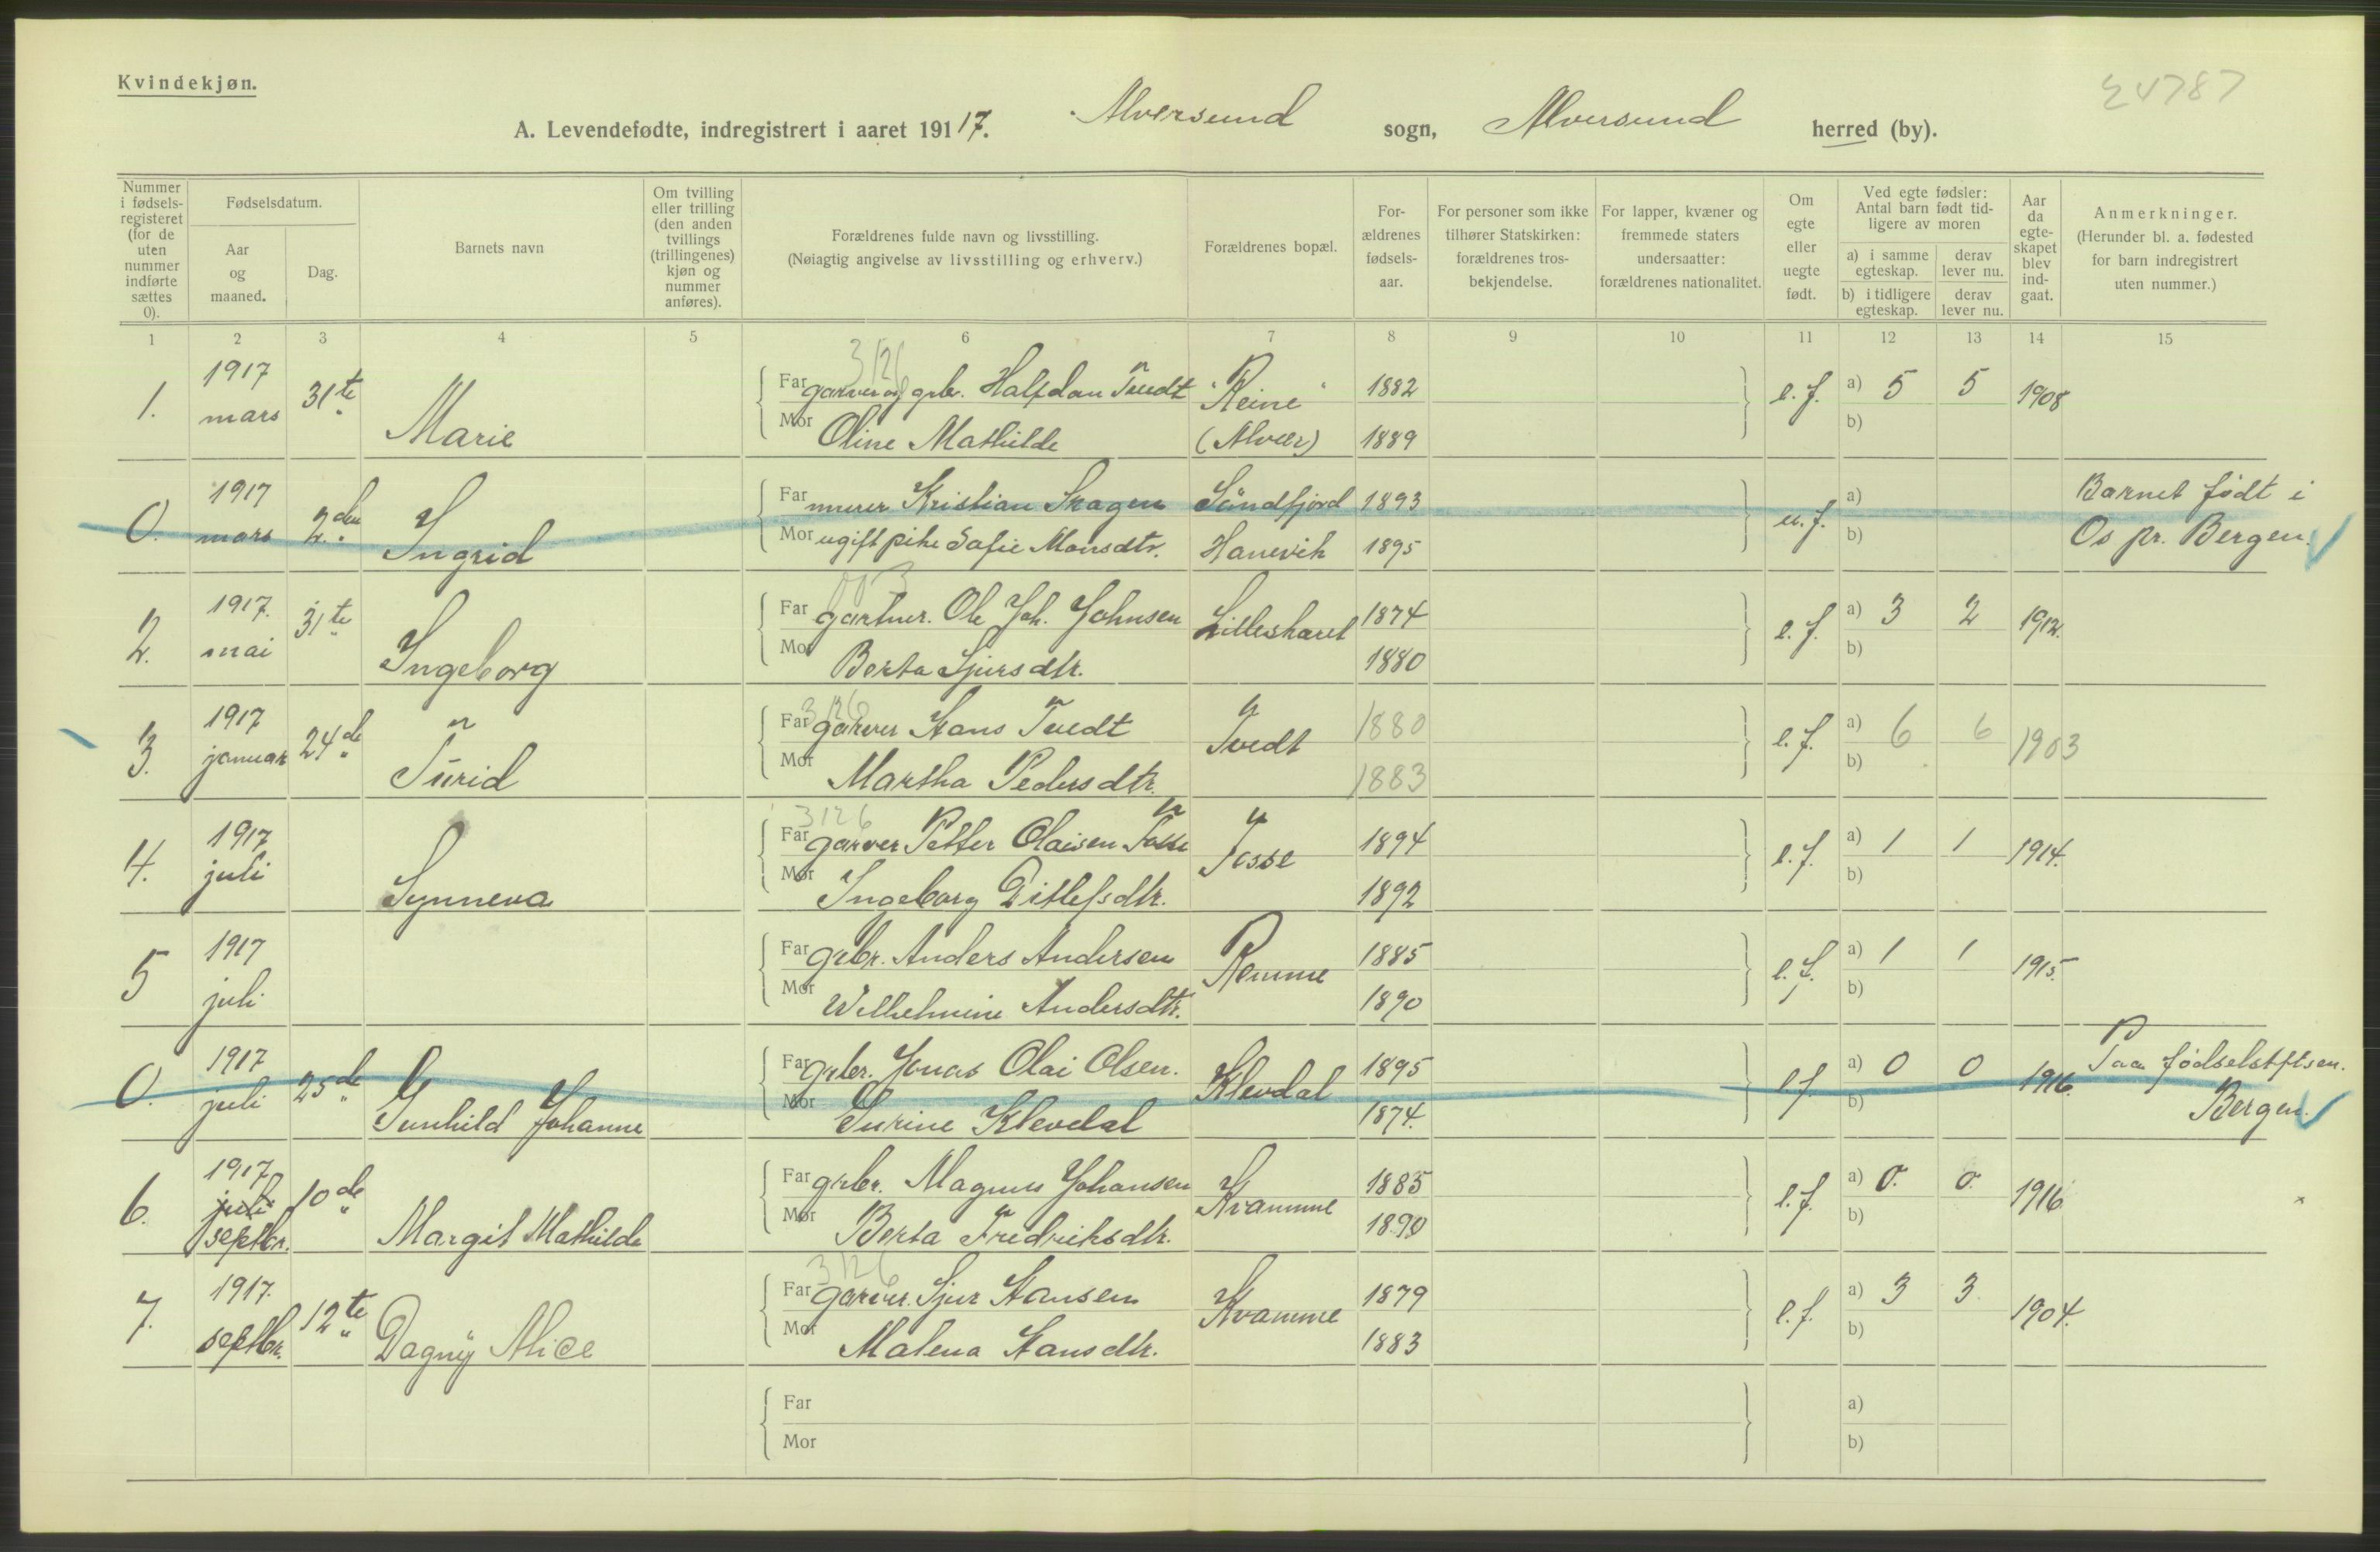 Kvindekjøn.
24787
A. Levendefødte, indregistrert i aaret 191 17. Alversund sogn, Alversund herred (by).
Nummer i fødselsregisteret (for de uten nummer indførte sættes 0).
Fødselsdatum.
Aar og maaned.
Dag.
Barnets navn
Om tvilling eller trilling (den anden tvillings (trillingenes) kjøn og nummer anføres).
Forældrenes fulde navn og livsstilling.
(Nøiagtig angivelse av livsstilling og erhverv.)
Forældrenes bopæl.
Forældrenes fødselsaar.
For personer som ikke tilhører Statskirken: forældrenes trosbekjendelse.
For lapper, kvæner og fremmede staters undersaatter: forældrenes nationalitet.
Om egte eller uegte født.
Ved egte fødsler: Antal barn født tidligere av moren
a) i samme egteskap. derav lever nu.
b) i tidligere egteskap. derav lever nu.
Aar da egteskapet blev indgaat.
Anmerkninger.
(Herunder bl. a. fødested for barn indregistrert uten nummer.)
1 2 3 4 5 6 7 8 9 10 11 12 13 14 15
3126
1. 1917 mars 31te Marie
Far garver og grbr. Halfdan Tvedt "Reine" 1882 e.f. a) 5 5 1908
Mor Oline Mathilde (Alver) 1889 b)
0. 1917 mars 2den Ingrid
Far murer Kristian Skagen Söndfjord 1893 u.f. a) Barnet født i
Mor ugift pike Sofie Monsdtr. Hanevik 1895 b) Os pr. Bergen.
2. 1917. mai 31te Ingeborg
Far gartner. Ole Joh. Johnsen Lilleskaret 1874 e.f. a) 3 2 1912.
Mor Berta Sjursdtr. 1880 b)
3126
3. 1917 januar 24de Turid
Far garver Hans Tvedt Tvedt 1880 e.f. a) 6 6 1903
Mor Martha Pedersdtr. 1883 b)
3126
4. 1917 juli Synneva
Far garver Petter Olaisen Tosse Tosse 1894 e.f. a) 1 1 1914.
Mor Ingeborg Ditlefsdtr. 1892 b)
5 1917 juli
Far grbr. Anders Andersen Remme 1885 e.f. a) 1 1 1915.
Mor Wilhelmine Andersdtr. 1890 b)
0. 1917 juli 25de Gunhild Johanne
Far grbr. Jonas Olai Olsen. Klevdal 1895 e.f. a) 0 0 1916. Paa fødselsstftsen.
Mor Surine Klevdal 1874. b) Bergen.
6. 1917 juli septbr. 10de Margit Mathilde
Far grbr. Magnus Johansen Kvamme 1885 e.f. a) 0. 0. 1916
Mor Berta Fredriksdtr. 1890 b)
3126
7. 1917. septbr. 12te Dagny Alice
Far garver. Sjur Hansen Kvamme 1879 e.f. a) 3 3. 1904.
Mor Malena Hansdtr. 1883 b)
Far a)
Mor b)